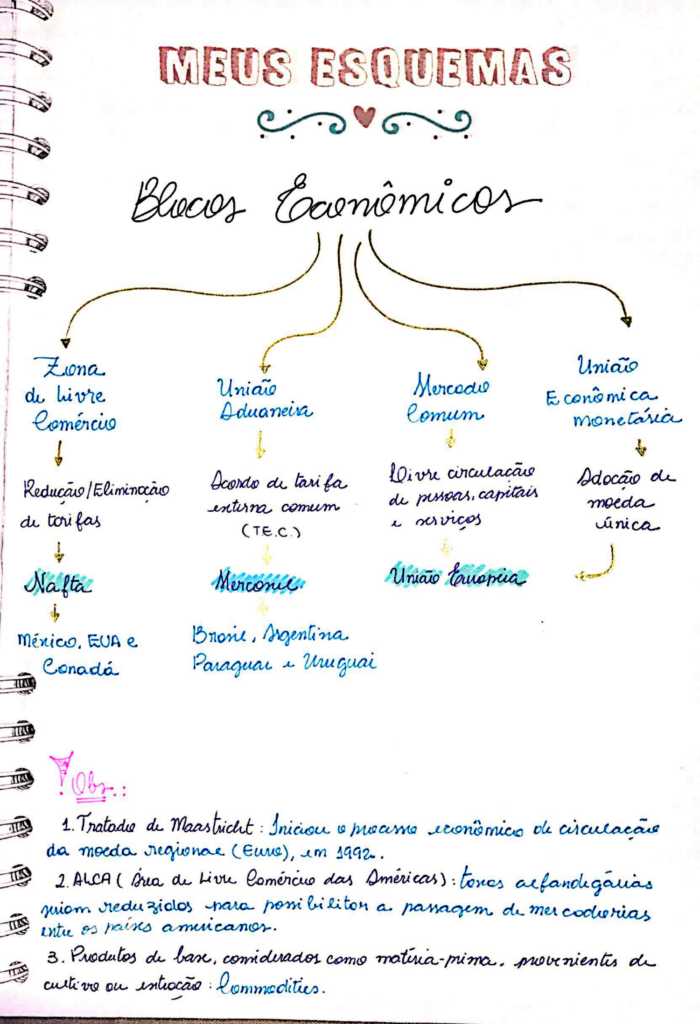 MEUS ESQUEMAS
Blocos Econômicos
Zona
de Livre
Comércio
Redução/Eliminação
de tarifas
Nafta
México, EUA e
Canadá
União
Aduaneira
Acordo de tarifa
externa comum
(T.E.C.)
Mercosul
Brasil, Argentina
Paraguai e Uruguai
Mercado
Comum
Livre circulação
de pessoas, capitais
e serviços
União Europeia
União
Econômica
monetária
Adoção de
moeda
única
! Obs.:
1. Tratado de Maastricht: Iniciou o processo econômico de circulação
da moeda regional (Euro), em 1992.
2. ALCA (Área de Livre Comércio das Américas): taxas alfandegárias
seriam reduzidas para possibilitar a passagem de mercadorias
entre os países americanos.
3. Produtos de base, considerados como matéria-prima, provenientes de
cultivo ou extração: Commodities.